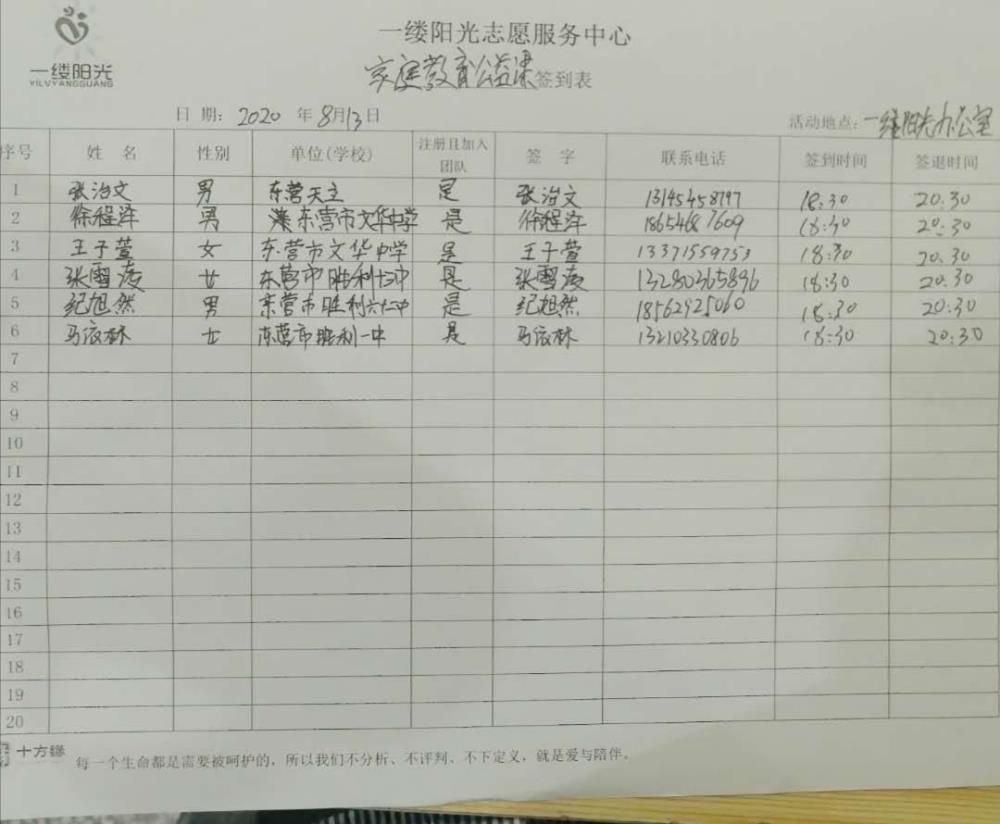 一缕阳光
YILVYANGGUANG
一缕阳光志愿服务中心
家庭教育公益课签到表
日期: 2020 年 8月13日
活动地点:一缕阳光办公室
序号 姓名 性别 单位(学校) 注册且加入团队 签字 联系电话 签到时间 签退时间
1 张治文 男 东营天立 是 张治文 18:30 20:30
2 徐程洋 男 东营市文华中学 是 徐程洋 18:30 20:30
3 王子萱 女 东营市文华中学 是 王子萱 13371559753 18:30 20.30
4 张雪凌 女 东营市胜利七中 是 张雪凌 18:30 20.30
5 纪旭然 男 东营市胜利六十二中 是 纪旭然 18562925060 18:30 20:30
6 马依林 女 东营市胜利一中 是 马依林 13210330806 18:30 20:30
7
8
9
10
11
12
13
14
15
16
17
18
19
20
十方缘 每一个生命都是需要被呵护的，所以我们不分析、不评判、不下定义，就是爱与陪伴。